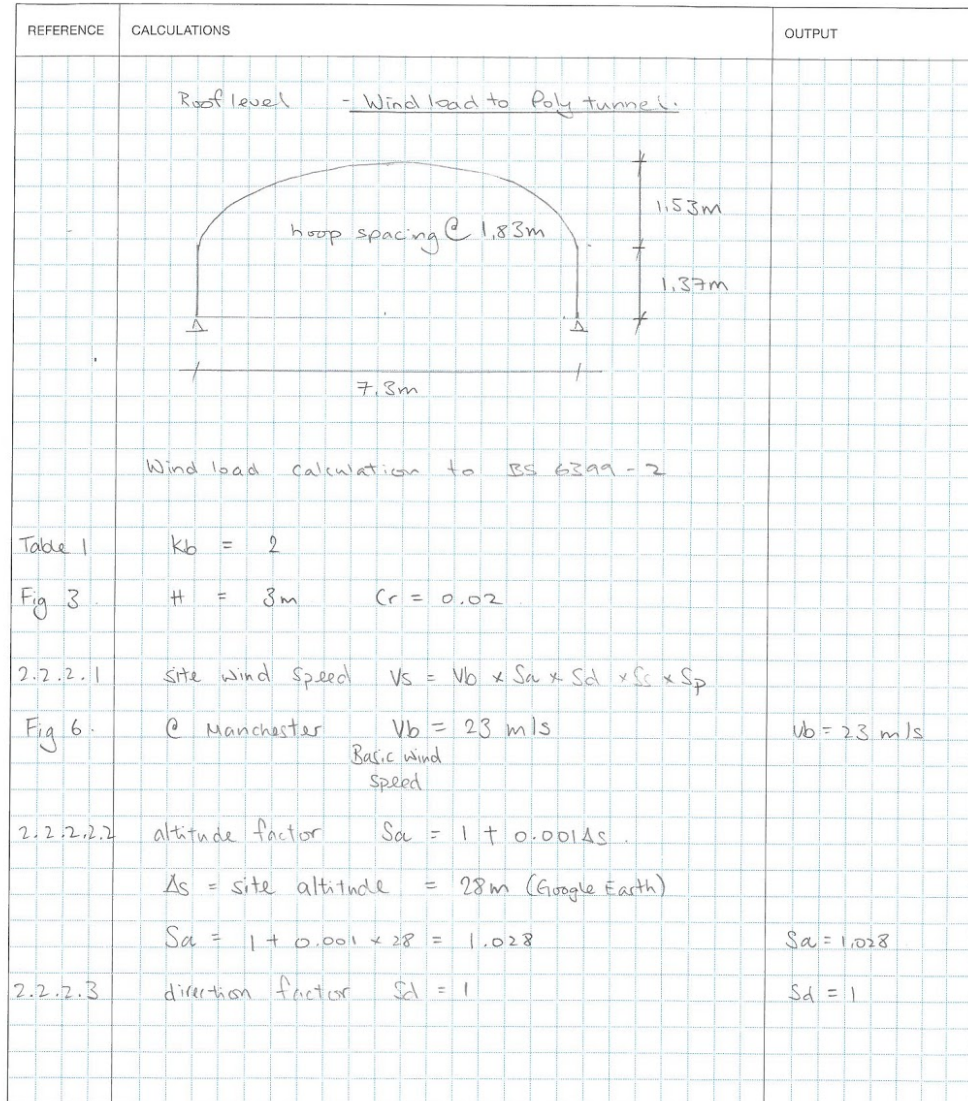 REFERENCE CALCULATIONS OUTPUT
Roof level - Wind load to Poly tunnel.
1.53m
hoop spacing @ 1.83m
1.37m
7.3m
Wind load calculation to BS 6399-2
Table 1 Kb = 2
Fig 3. H = 3m Cr = 0.02
2.2.2.1 site wind speed Vs = Vb × Sa × Sd × Ss × Sp
Fig 6. @ Manchester Vb = 23 m/s Vb = 23 m/s
Basic wind
speed
2.2.2.2.2 altitude factor Sa = 1 + 0.001Δs.
Δs = site altitude = 28m (Google Earth)
Sa = 1 + 0.001 × 28 = 1.028 Sa = 1.028
2.2.2.3 direction factor Sd = 1 Sd = 1